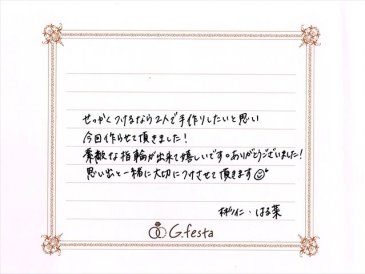 せっかくつけるなら2人で手作りしたいと思い
今回作らせて頂きました!
素敵な指輪が出来て嬉しいです。ありがとうございました!
思い出と一緒に大切につけさせて頂きます
はる菜
G.festa